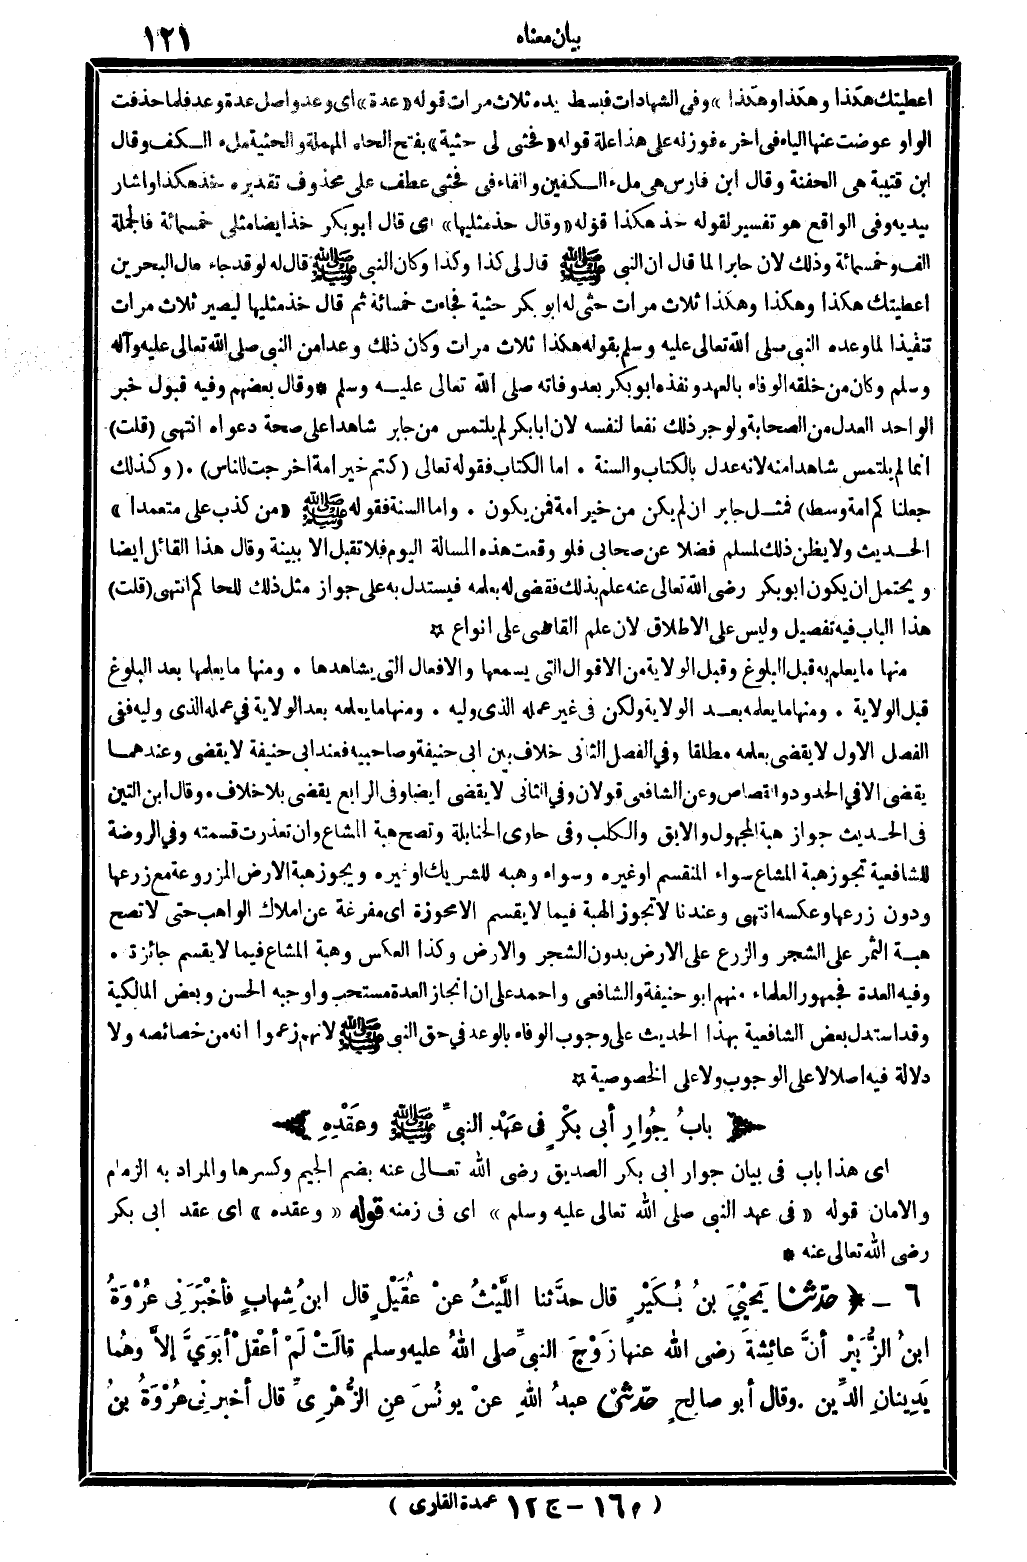 بيان معناه ١٢١
اعطيتك هكذا وهكذا وهكذا » وفي الشهادات فبسط يده ثلاث مرات قوله « عدة » اى وعد واصل عدة وعد فلما حذفت
الواو عوضت عنها الياء فى اخره فوزنه على هذا علة قوله « فحثى لى حثية » بفتح الحاء المهملة والحثية ملء الكف وقال
ابن قتيبة هى الحفنة وقال ابن فارس هى ملء الكفين والفاء فى فحثى عطف على محذوف تقديره خذ هكذا واشار
بيديه وفى الواقع هو تفسير لقوله خذ هكذا قوله « وقال خذ مثليها » اى قال ابو بكر خذ ايضا مثلى خمسمائة فالجملة
الف وخمسمائة وذلك لان جابرا لما قال ان النبى ﷺ قال لى كذا وكذا وكان النبى ﷺ قال له لو قد جاء مال البحرين
اعطيتك هكذا وهكذا وهكذا ثلاث مرات حثى له ابو بكر حثية فجاءت خمسمائة ثم قال خذ مثليها ليصير ثلاث مرات
تنفيذا لما وعده النبى صلى الله تعالى عليه وسلم بقوله هكذا ثلاث مرات وكان ذلك وعدا من النبى صلى الله تعالى عليه وآله
وسلم وكان من خلقه الوفاء بالعهد ونفذه ابو بكر بعد وفاته صلى الله تعالى عليه وسلم * وقال بعضهم وفيه قبول خبر
الواحد العدل من الصحابة ولو جر ذلك نفعا لنفسه لان ابا بكر لم يلتمس من جابر شاهدا على صحة دعواه انتهى ( قلت )
انما لم يلتمس شاهدا منه لانه عدل بالكتاب والسنة . اما الكتاب فقوله تعالى ( كنتم خير امة اخرجت للناس ) . ( وكذلك
جعلناكم امة وسطا ) فمثل جابر ان لم يكن من خير امة فمن يكون . واما السنة فقوله ﷺ « من كذب على متعمدا »
الحديث ولا يظن ذلك لمسلم فضلا عن صحابى فلو وقعت هذه المسالة اليوم فلا تقبل الا ببينة وقال هذا القائل ايضا
ويحتمل ان يكون ابو بكر رضى الله تعالى عنه علم بذلك فقضى له بعلمه فيستدل به على جواز مثل ذلك للحاكم انتهى ( قلت )
هذا الباب فيه تفصيل وليس على الاطلاق لان علم القاضى على انواع ✩
منها ما يعلم به قبل البلوغ وقبل الولاية من الاقوال التى يسمعها والافعال التى يشاهدها . ومنها ما يعلمها بعد البلوغ
قبل الولاية . ومنها ما يعلمه بعد الولاية ولكن فى غير عمله الذى وليه . ومنها ما يعلمه بعد الولاية في عمله الذى وليه ففى
الفصل الاول لا يقضى بعلمه مطلقا وفي الفصل الثانى خلاف بين ابى حنيفة وصاحبيه فعند ابى حنيفة لا يقضى وعندهما
يقضى الا في الحدود والقصاص وعن الشافعى قولان وفي الثانى لا يقضى ايضا وفى الرابع يقضى بلا خلاف . وقال ابن التين
فى الحديث جواز هبة المجهول والابق والكلب وفى حاوى الحنابلة وتصح هبة المشاع وان تعذرت قسمته وفي الروضة
للشافعية تجوز هبة المشاع سواء المنقسم او غيره وسواء وهبه للشريك او غيره ويجوز هبة الارض المزروعة مع زرعها
ودون زرعها وعكسه انتهى وعندنا لا تجوز الهبة فيما لا يقسم الا محوزة اى مفرغة عن املاك الواهب حتى لا تصح
هبة الثمر على الشجر والزرع على الارض بدون الشجر والارض وكذا العكس وهبة المشاع فيما لا يقسم جائزة .
وفيه العدة فجمهور العلماء منهم ابو حنيفة والشافعى واحمد على ان انجاز العدة مستحب واوجبه الحسن وبعض المالكية
وقد استدل بعض الشافعية بهذا الحديث على وجوب الوفاء بالوعد في حق النبى ﷺ لانهم زعموا انه من خصائصه ولا
دلالة فيه اصلا لا على الوجوب ولا على الخصوصية ✩
﴿ بابُ جُوَارِ أبى بَكْرٍ فى عَهْدِ النبىِّ ﷺ وعَقْدِهِ ﴾
اى هذا باب فى بيان جوار ابى بكر الصديق رضى الله تعالى عنه بضم الجيم وكسرها والمراد به الزمام
والامان قوله « فى عهد النبى صلى الله تعالى عليه وسلم » اى فى زمنه قوله « وعقده » اى عقد ابى بكر
رضى الله تعالى عنه *
٦ – ﴿ حَدَّثَنَا يَحْيَىٰ بنُ بُكَيْرٍ قال حدَّثنا اللَّيْثُ عنْ عُقَيْلٍ قال ابنُ شِهابٍ فأخْبَرَنى عُرْوَةُ
ابنُ الزُّبَيْرِ أنَّ عائِشةَ رضى الله عنها زَوْجَ النبىِّ صلى اللهُ عليه وسلم قالَتْ لَمْ أعْقِلْ أبَوَيَّ إلاَّ وهُما
يَدِينانِ الدِّينَ . وقال أبو صالِحٍ حدَّثَنِي عبدُ اللهِ عنْ يونُسَ عنِ الزُّهْرِىِّ قال أخبرنى عُرْوَةُ بنُ
( م ١٦ – ج ١٢ عمدة القارى )